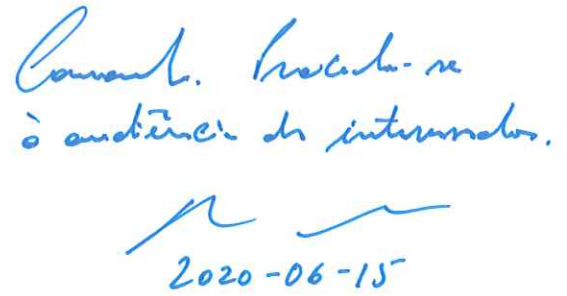 Concordo. Proceda-se
à audiência dos interessados.
2020-06-15